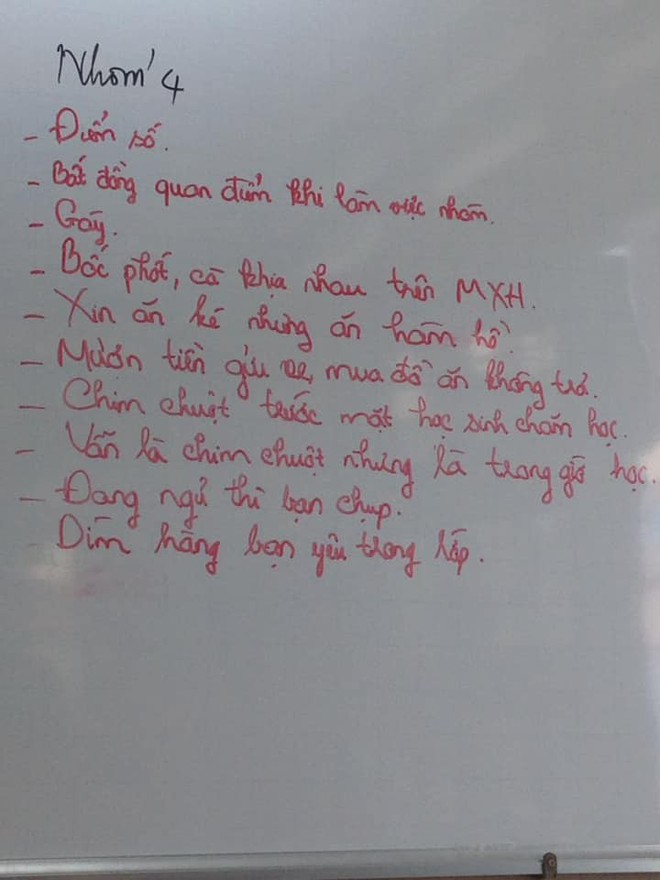 Nhóm 4
- Điểm số.
- Bất đồng quan điểm khi làm việc nhóm.
- Gáy.
- Bóc phốt, cà khịa nhau trên MXH.
- Xin ăn ké nhưng ăn hàm hồ.
- Mượn tiền gửi xe, mua đồ ăn không trả.
- Chim chuột trước mặt học sinh chăm học.
- Vẫn là chim chuột nhưng là trong giờ học.
- Đang ngủ thì bạn chụp.
- Dìm hàng bạn yêu trong lớp.